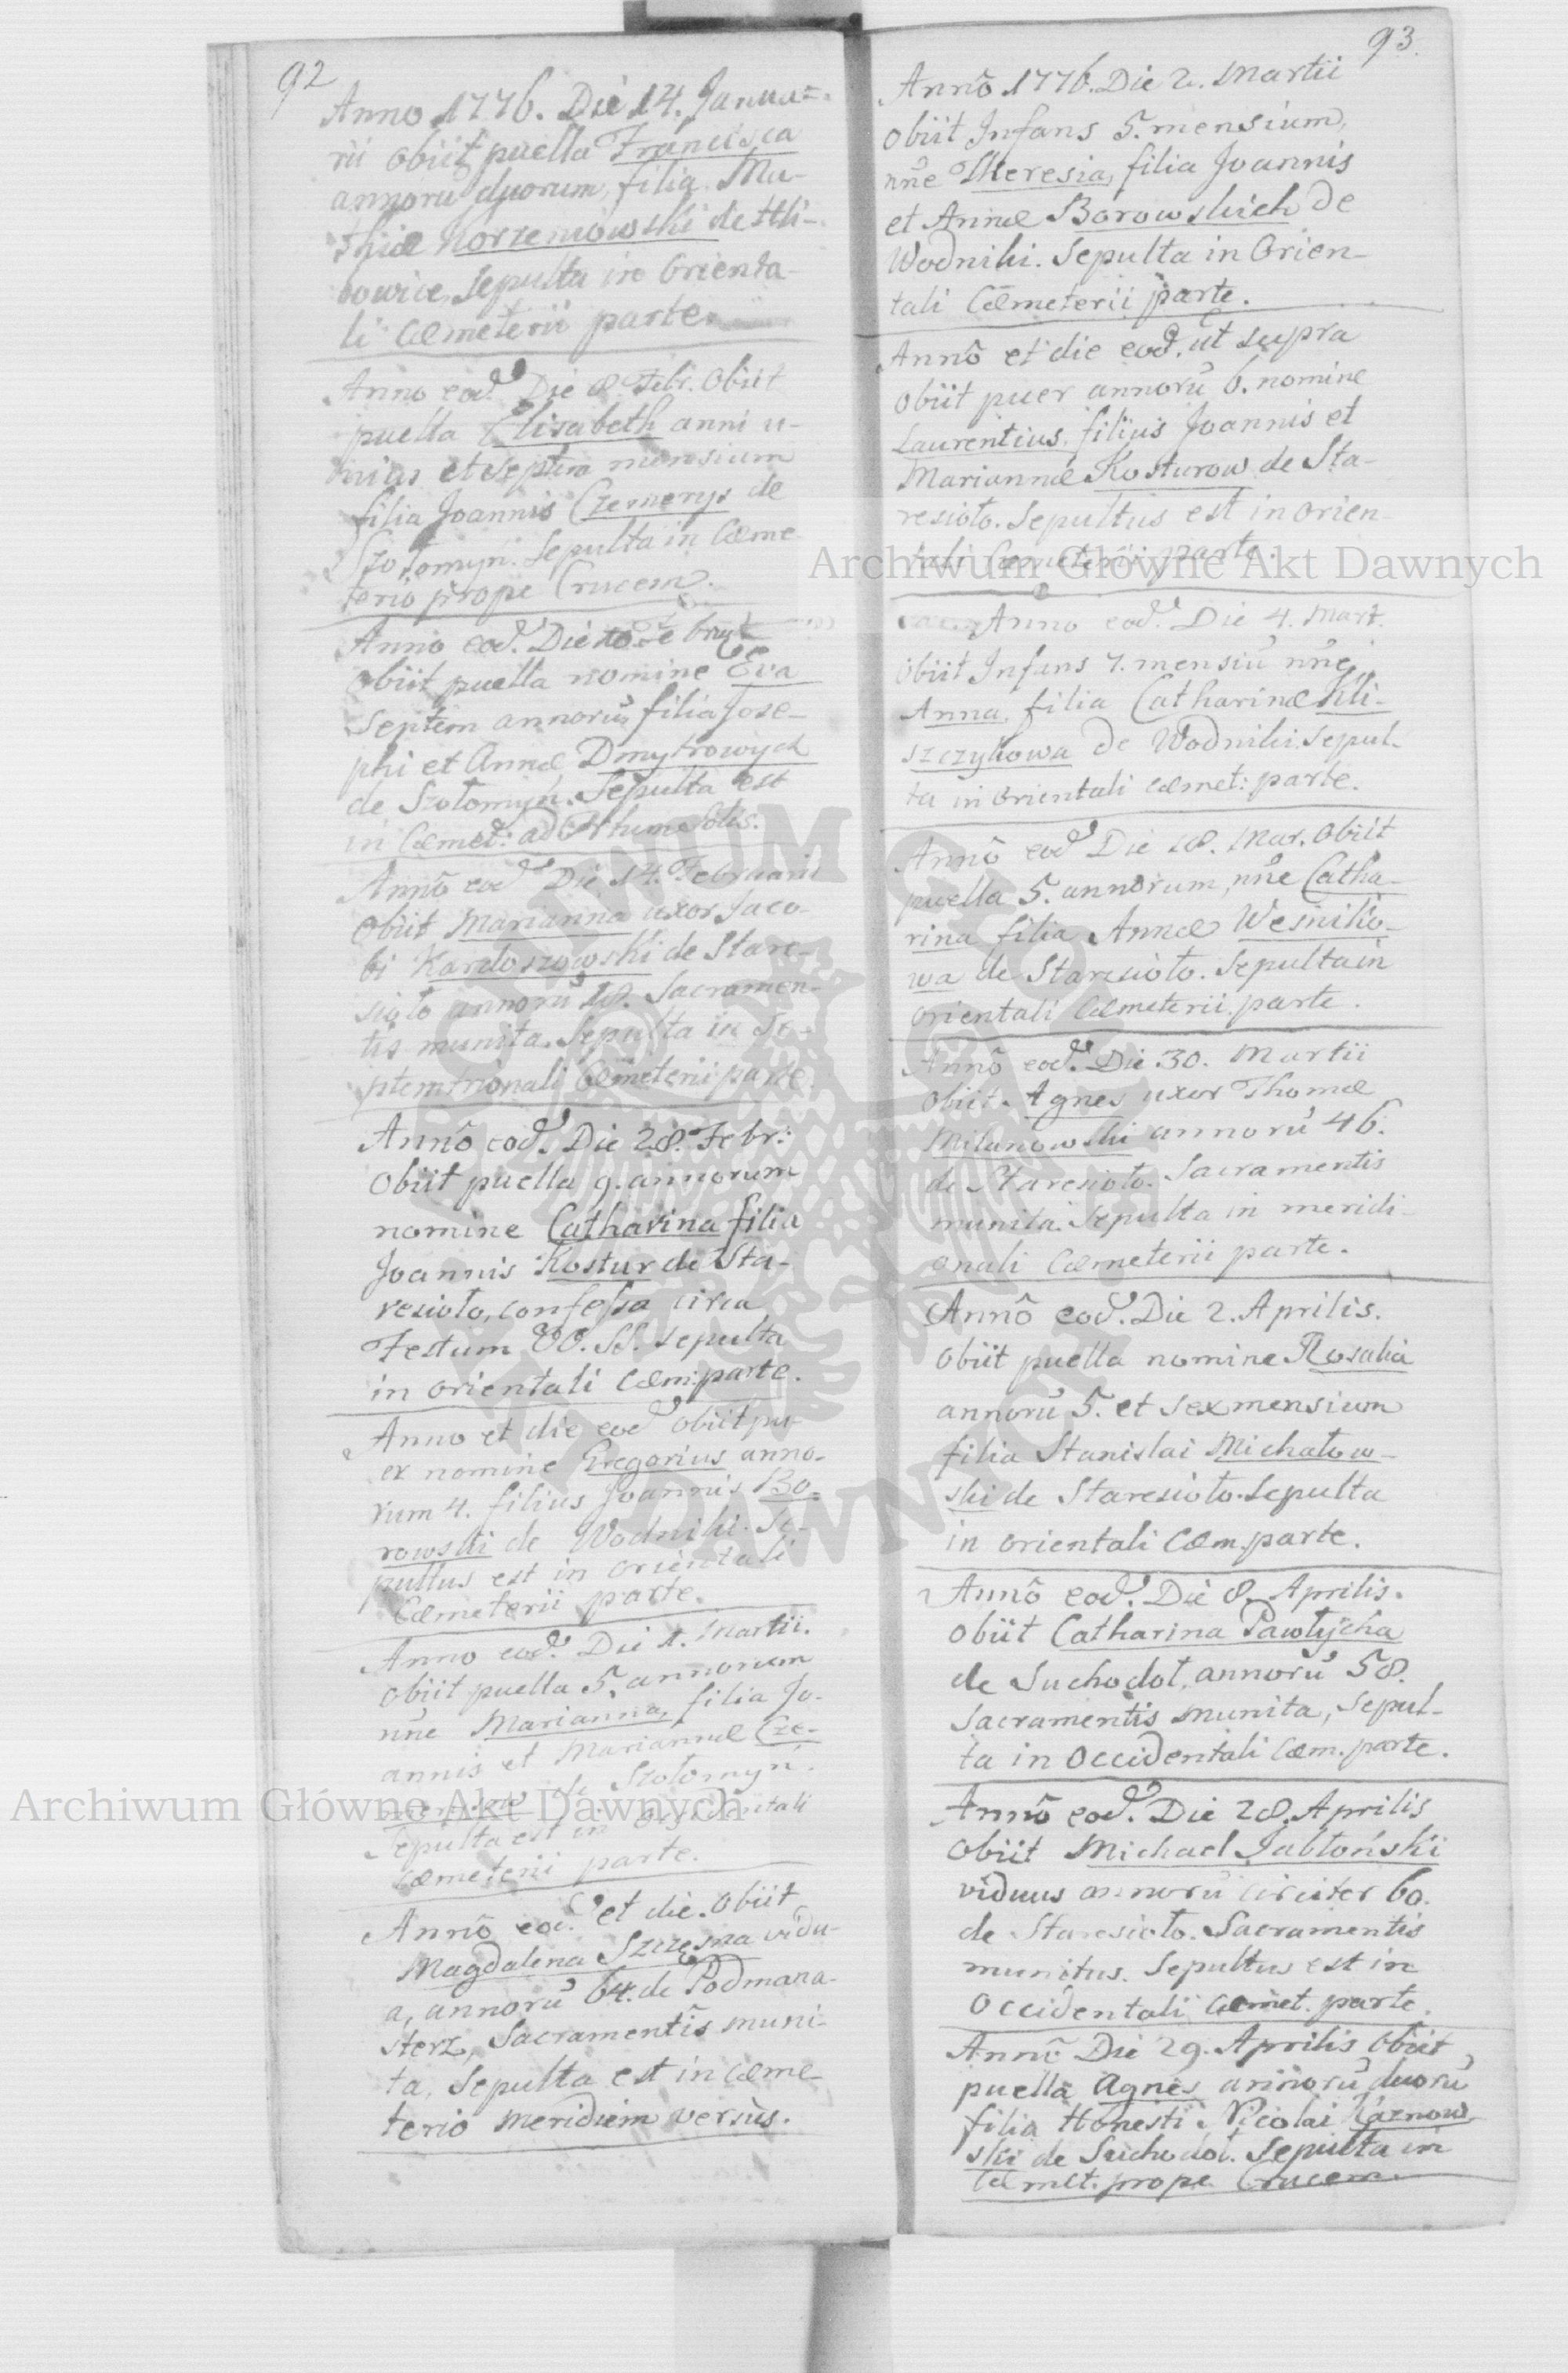 92
Anno 1776. Die 14. Janua-
rii obiit puella Francisca
annorũ duorum, filia Ma-
thiæ Korzeniowski de Hli-
bowice, sepulta in Orienta-
li Cæmeterii parte.
Anno eod. Die 8. Febr. Obiit
puella Elisabeth anni u-
nius et septem mensium
filia Joannis Czemerys de
Szołomyń. Sepulta in Cæme-
terio prope Crucem.
Anno eod. Die
Obiit puella nomine Eva
Septem annorũ filia Jose-
phi et Annæ Dmytrowych
de Szołomyń. Sepulta est
in Cæmet: ad
Annô eod. Die 14. Februarii
Obiit Marianna uxor Jaco-
bi Kardoszowski de Stare-
sioło annorũ 18. Sacramen-
tis munita. Sepulta in Se-
ptemtrionali Cæmeterii parte.
Annô eod. Die 28. Febr:
Obiit puella 9. annorum
nomine Catharina filia
Joannis Kostur de Sta-
resioło, confessa circa
Festum OO. SS. sepulta
in orientali Cæm: parte.
Anno et die eod. obiit pu-
er nomine Gregorius anno-
rum 4. filius Joannis Bo-
rowski de Wodniki. Se-
pultus est in orientali
Cæmeterii parte.
Anno eod. Die 1. Martii.
Obiit puella 5. annorum
nñe Marianna, filia Jo-
annis et Mariannæ Cze-
de Szołomyń.
Sepulta est in Occidentali
cæmeterii parte.
Annô eod. et die. Obiit
Magdalena Szczęsna vidu-
a, annorũ 64. de Podmana-
sterz, Sacramentis muni-
ta, Sepulta est in cæme-
terio meridiem versùs.
93.
Annô 1776. Die 2. Martii
Obiit Infans 5. mensium,
nñe Theresia, filia Joannis
et Annæ Borowskich de
Wodniki. Sepulta in Orien-
tali Cæmeterii parte.
Annô et die eod. ut supra
Obiit puer annorũ 6. nomine
Laurentius, filius Joannis et
Mariannæ Kosturow de Sta-
resioło. Sepultus est in orien-
tali Cæmeterii parte.
Anno eod. Die 4. Mart.
Obiit Infans 7. mensiũ nñe
Anna, filia Catharinæ Kli-
szczykowa de Wodniki. Sepul-
ta in Orientali cæmet: parte.
Annô eod. Die 18. Mar. Obiit
puella 5. annorum, nñe Catha-
rina filia Annæ Wesniko-
wa de Staresioło. Sepulta in
orientali Cæmeterii parte.
Annô eod. Die 30. Martii
Obiit Agnes uxor Thomæ
Milanowski annorũ 46.
de Staresioło. Sacramentis
munita. Sepulta in meridi-
onali Cæmeterii parte.
Annô eod. Die 2. Aprilis.
Obiit puella nomine Rosalia
annorũ 5. et sex mensium
filia Stanislai Michałow-
ski de Staresioło. Sepulta
in orientali Cæm. parte.
Annô eod. Die 8. Aprilis.
Obiit Catharina Pawłycha
de Suchodoł, annorũ 58.
Sacramentis munita, Sepul-
ta in Occidentali Cæm. parte.
Annô eod. Die 28. Aprilis
Obiit Michael Jabłoński
viduus annorũ circiter 60.
de Staresioło. Sacramentis
munitus. Sepultus est in
Occidentali Cæmet. parte.
Annô Die 29. Aprilis Obiit
puella Agnes annorũ duorũ
filia Honesti Nicolai
ski de Suchodoł. Sepulta in
Cæmet. prope Crucem.
Archiwum Główne Akt Dawnych
Archiwum Główne Akt Dawnych
ARCHIWUM GŁÓWNE AKT DAWNYCH